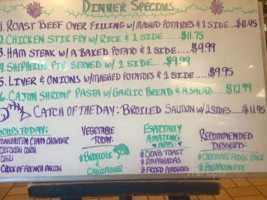 Dinner Specials
1. Roast Beef over Filling w/Mashed Potatoes & 1 Side... $10.45
2. Chicken Stir Fry w/ Rice & 1 Side... $11.75
3. Ham Steak w/ a Baked Potato & 1 Side.... $9.99
4. Shepherds Pie served w/ 1 Side.... $9.99
5. Liver & Onions w/Mashed Potatoes & 1 Side.... $9.95
6. Cajun Shrimp Pasta w/ Garlic Bread & a Salad... $12.99
Catch of the Day: Broiled Salmon w/ 2 Sides....
Soups Today:
Manhattan Clam Chowder
Chicken Corn
Chili
Cream of
Vegetable Today:
Broccoli &
Cauliflower
Especially Amazing Apps:
Crab Toast
Empanadas
Fried Pierogies
Recommended Desserts:
Chocolate Fudge Cake
Pie